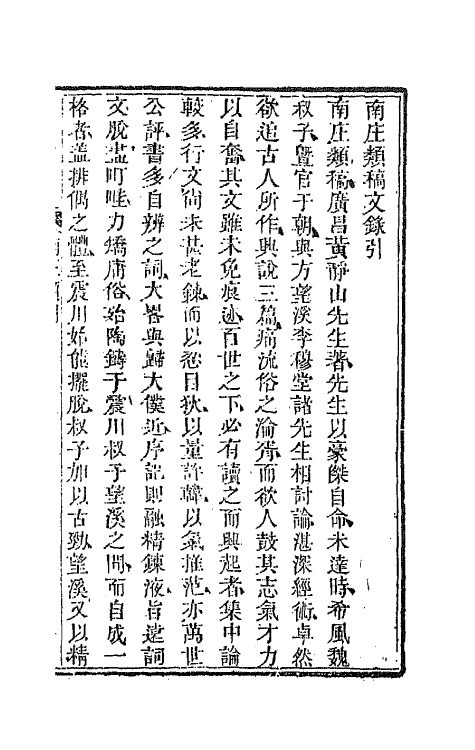 南庄類稿文錄引
南庄類稿廣昌黃靜山先生著先生以豪傑自命未達時希風魏
叔子暨官于朝與方望溪李穆堂諸先生相討論湛深經術卓然
欲追古人所作與說三篇痛流俗之淪胥而欲人鼓其志氣才力
以自奮其文雖未免痕迹百世之下必有讀之而興起者集中論
較多行文尚未甚老鍊而以恕目狄以量許韓以氣推范亦萬世
公評書多自辨之詞大畧與歸太僕近序記則融精鍊液旨遠詞
文脫盡叮哇力矯庸俗始陶鑄于震川叔子望溪之間而自成一
格者蓋排偶之體至震川始能擺脫叔子加以古勁望溪又以精